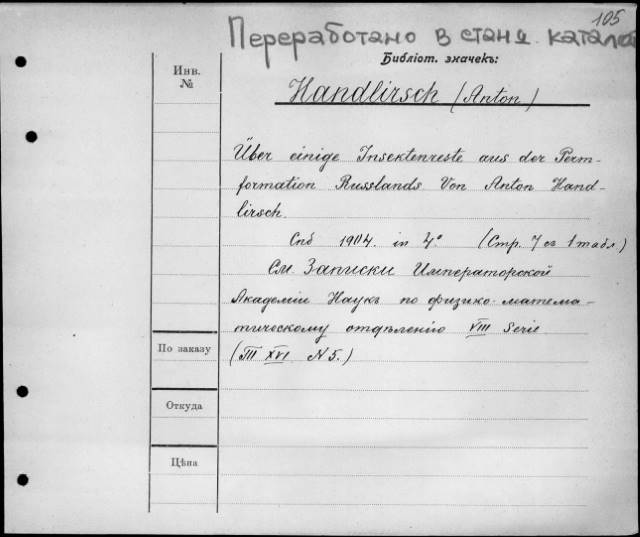 105
Переработано в станд. катало
Библіот. значекъ:
Инв.
№
Handlirsch (Anton)
Über einige Insektenreste aus der Perm-
formation Russlands Von Anton Hand-
lirsch.
Спб 1904. in 4° (Стр. 7 съ 1 табл.)
См. Записки Императорской
Академіи Наукъ по физико-матема-
тическому отдѣленію VIII Serie
(Т XVI N5.)
По заказу
Откуда
Цѣна